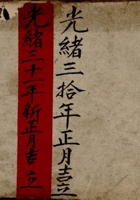 光緒三拾年正月吉立
光緒三十一年新正月吉立